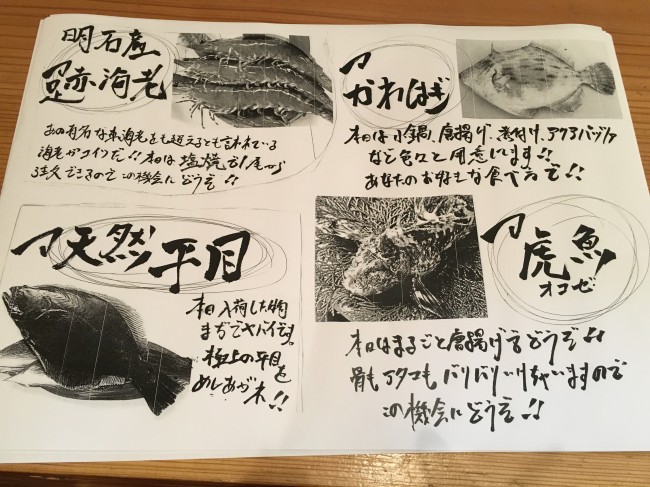 明石産
足赤海老
あの有名な車海老をも超えるとも言われている
海老がコイツだ!!本日は塩焼で1尾から
注文できるので この機会にどうぞ!!
かわはぎ
本日は小鍋、唐揚げ、煮付け、アクアパッツァ
など色々と用意します!!
あなたのお好きな食べ方で!!
天然平目
本日入荷した物
まぢでヤバイです。
極上の平目を
めしあがれ!!
虎魚
オコゼ
本日はまるごと唐揚げでどうぞ!!
骨もアタマもバリバリいけちゃいますので
この機会にどうぞ!!